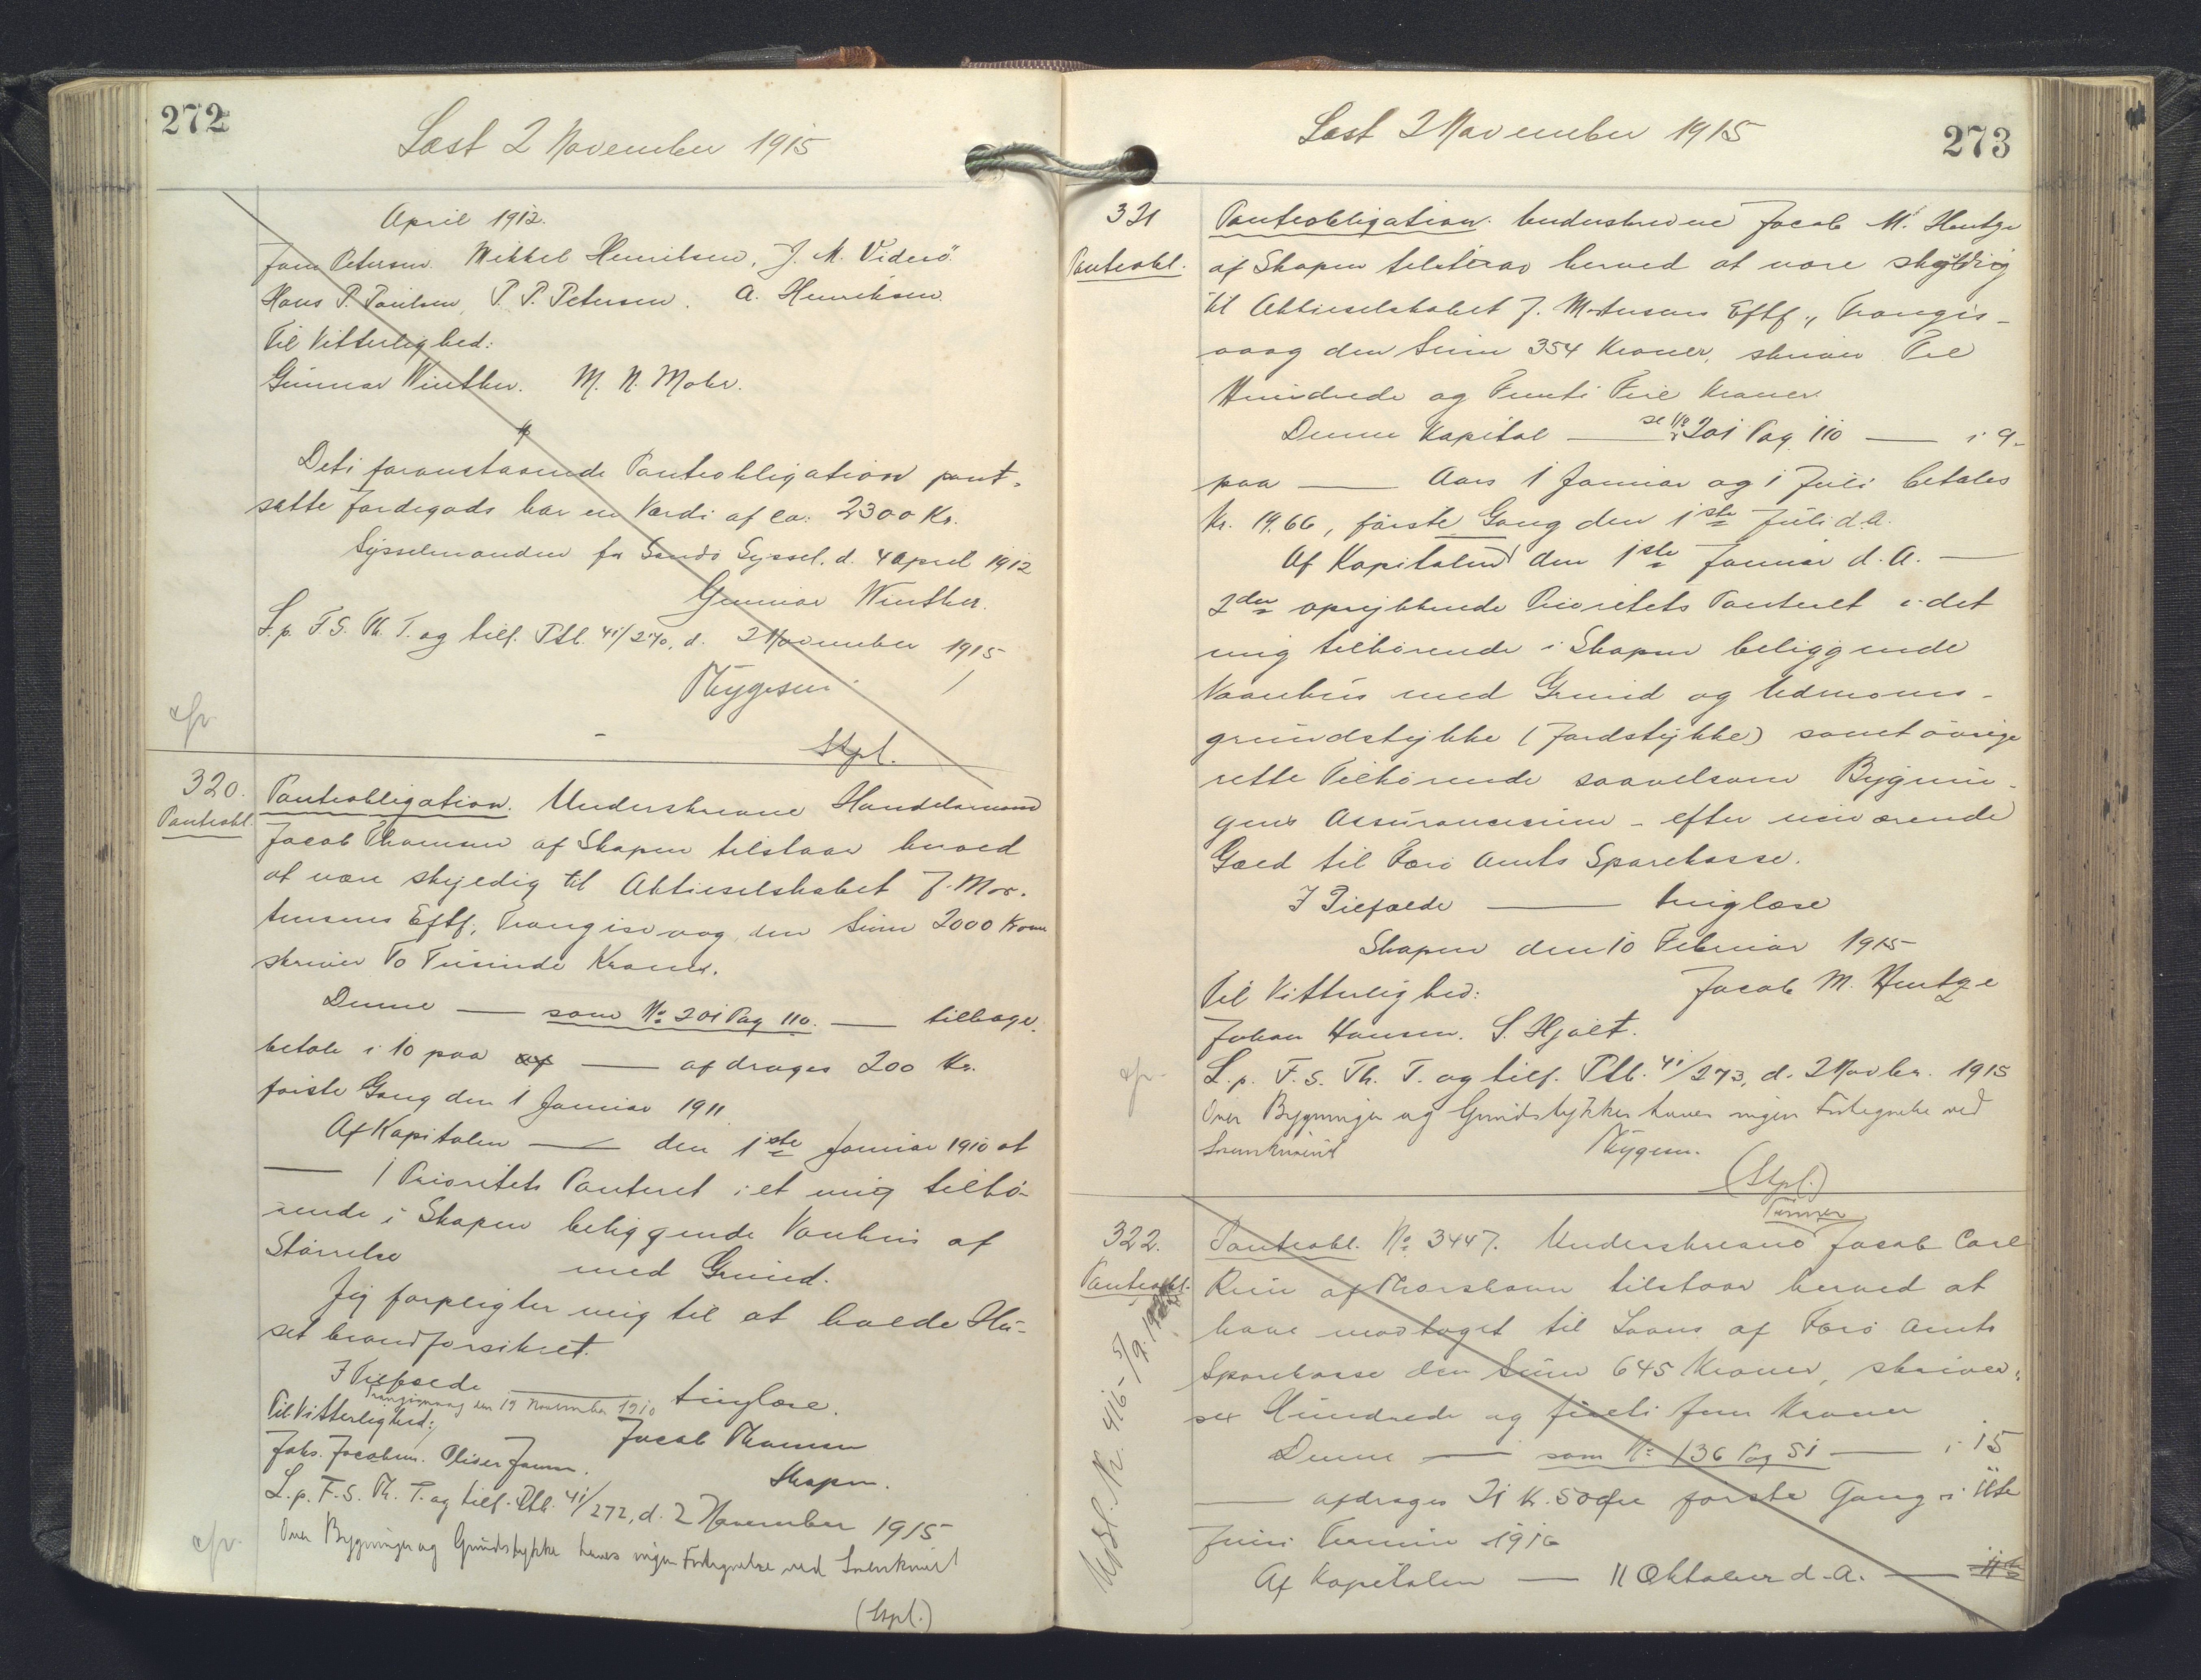 272
Læst 2 November 1915
April 1912.
Mikkel Henriksen, J. M. Viderö.
Hans P. Poulsen, P. P. Petersen. A. Henriksen.
Til Vitterlighed:
Gunnar Winther. M. N. Mohr.
Det i foranstaaende Panteobligation pant-
satte Jordegods har en Værdi af ca: 2300 Kr.
Sysselmanden for Sandö Syssel. d. 4 April 1912
Gunnar Winther.
L. p. F. S. Th. T. og tilf. Ptb. 41/270, d. 2 November 1915
Thygesen
Stpl.
cfr.
320.
Panteobl.
Panteobligation. Underskrevne Handelsmand
Jacob Thomsen af Skapen tilstaar herved
at være skyldig til Aktieselskabet J. Mor-
tensens Eftf., Trangisvaag, den Sum 2000 Kroner
skriver To Tusinde Kroner.
Denne — som No 201 Pag 110. — tilbage-
betale i 10 paa af — afdrages 200 Kr.
første Gang den 1 Januar 1911
Af Kapitalen — den 1ste Januar 1910 at
— 1 Prioritets Panteret i et mig tilhö-
rende i Skapen beliggende Vaanhus af
Størrelse med Grund.
Jeg forpligter mig til at holde Hu-
set brandforsikret.
I Tilfælde — tinglæse.
Trangisvaag den 19 November 1910
Til Vitterlighed: Jacob Thomsen
Johs. Jacobsen. Oliver Joensen. Skapen.
L. p. F. S. Th. T. og tilf. Ptb. 41/272, d. 2 November 1915
Over Bygninger og Grundstykke haves ingen Fortegnelse ved Sorenskriveriet
(Stpl.)
cfr.
Læst 2 November 1915
273
321
Panteobl.
Panteobligation. Underskrevne Jacob M. Hentze
af Skapen tilstaar herved at være skyldig
til Aktieselskabet J. Mortensens Eftf., Trangis-
vaag den Sum 354 Kroner, skriver Tre
Hundrede og Femti Fire Kroner.
Denne Kapital — se No 201 Pag 110 — i 9-
paa — Aars 1 Januar og 1 Juli betales
Kr. 19.66, første Gang den 1ste Juli d.A.
Af Kapitalen den 1ste Januar d. A. —
2den oprykkende Prioritets Panteret i det
mig tilhörende i Skapen beliggende
Vaanhus med Grund og Udmarks-
grundstykke (Jordstykke) samt övrige
rette Tilhörende saavelsom Bygnin-
gens Assurancesum - efter nuværende
Gæld til Færö Amts Sparekasse.
I Tilfælde — tinglæse
Skapen den 10 Februar 1915
Til Vitterlighed: Jacob M. Hentze
Johan Hansen. S. Hjalt.
L. p. F. S. Th. T. og tilf. Ptb. 41/273, d. 2 Novbr. 1915
Over Bygninger og Grundstykker haves ingen Fortegnelse ved
Sorenskriveriet Thygesen.
(Stpl.)
cfr.
322.
Panteobl.
Panteobl. No 3447. Underskrevne Tømrer Jacob Carl
af Thorshavn tilstaar herved at
have modtaget til Laans af Færö Amts
Sparekasse den Sum 645 Kroner, skriver:
sex Hundrede og firti fem Kroner
Denne — som No 136 Pag 51 — i 15
— afdrages 21 Kr. 50 Øre første Gang i 11te
Juni Termin 1916
Af Kapitalen — 11 Oktober d. A. — 11te